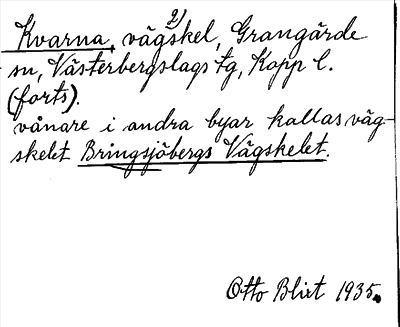 2)
Kvarna, vägskel, Grangärde
sn, Västerbergslags tg, Kopp l.
(forts).
vånare i andra byar kallas väg-
skelet Bringsjöbergs Vägskelet.
Otto Blixt 1935.